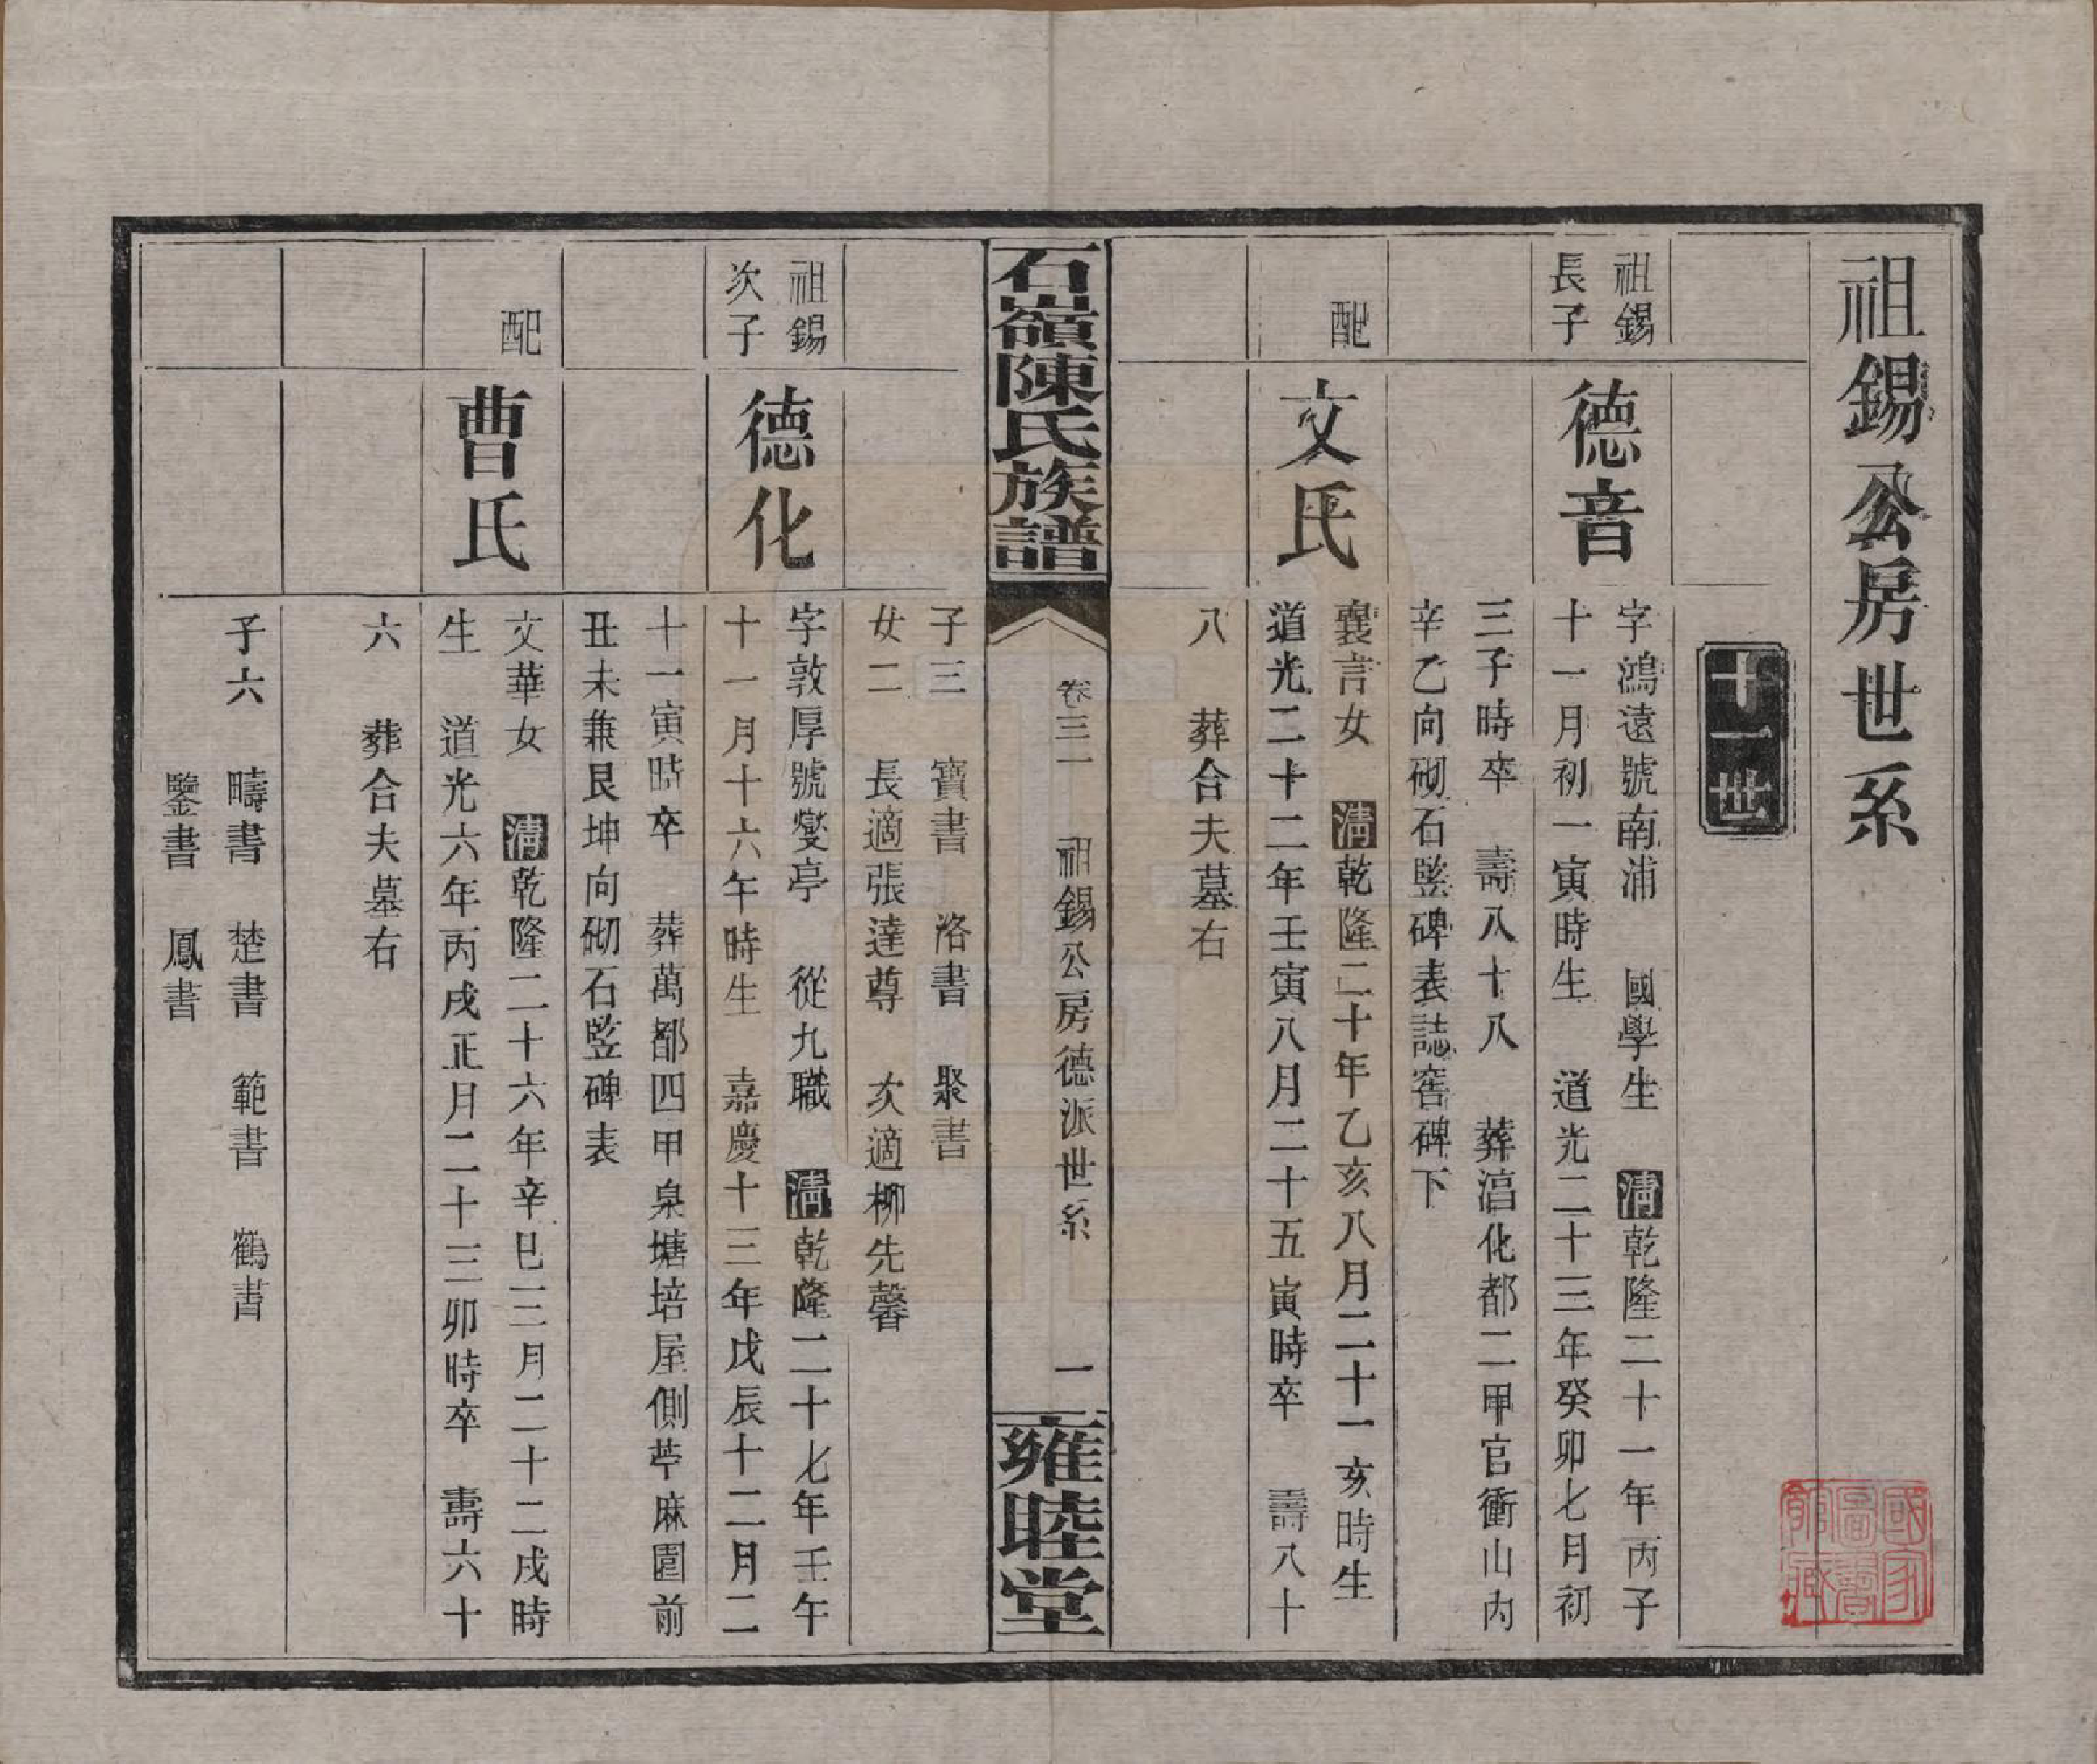 祖錫公房世系
十一世
祖錫
長子
德音
字鴻遠號南浦 國學生 清乾隆二十一年丙子
十一月初一寅時生 道光二十三年癸卯七月初
三子時卒 壽八十八 葬湻化都二甲官衝山內
辛乙向砌石竪碑表誌窖碑下
配
文氏
襄言女 清乾隆二十年乙亥八月二十一亥時生
道光二十二年壬寅八月二十五寅時卒 壽八十
八 葬合夫墓右
石嶺陳氏族譜
卷三一 祖錫公房德派世系 一
雍睦堂
子三 寶書 洛書 聚書
女二 長適張達尊 次適柳先馨
祖錫
次子
德化
字敦厚號燮亭 從九職 清乾隆二十七年壬午
十一月十六午時生 嘉慶十三年戊辰十二月二
十一寅時卒 葬萬都四甲泉塘培屋側苧麻園前
丑未兼艮坤向砌石竪碑表
配
曹氏
文華女 清乾隆二十六年辛巳二月二十二戌時
生 道光六年丙戌正月二十三卯時卒 壽六十
六 葬合夫墓右
子六 疇書 楚書 範書 鶴書
鑒書 鳳書
國家
圖書
館藏